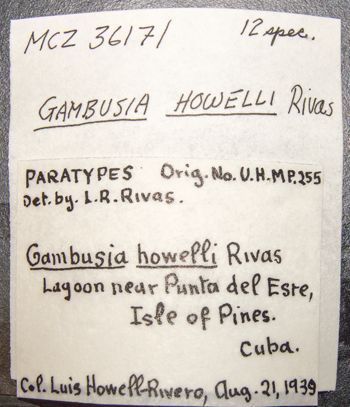 MCZ 36171 12 spec.
GAMBUSIA HOWELLI Rivas
PARATYPES Orig. No. U.H.M.P. 255
Det. by. L.R. Rivas.
Gambusia howelli Rivas
Lagoon near Punta del Este,
Isle of Pines.
Cuba.
Col. Luis Howell-Rivero, Aug. 21, 1939